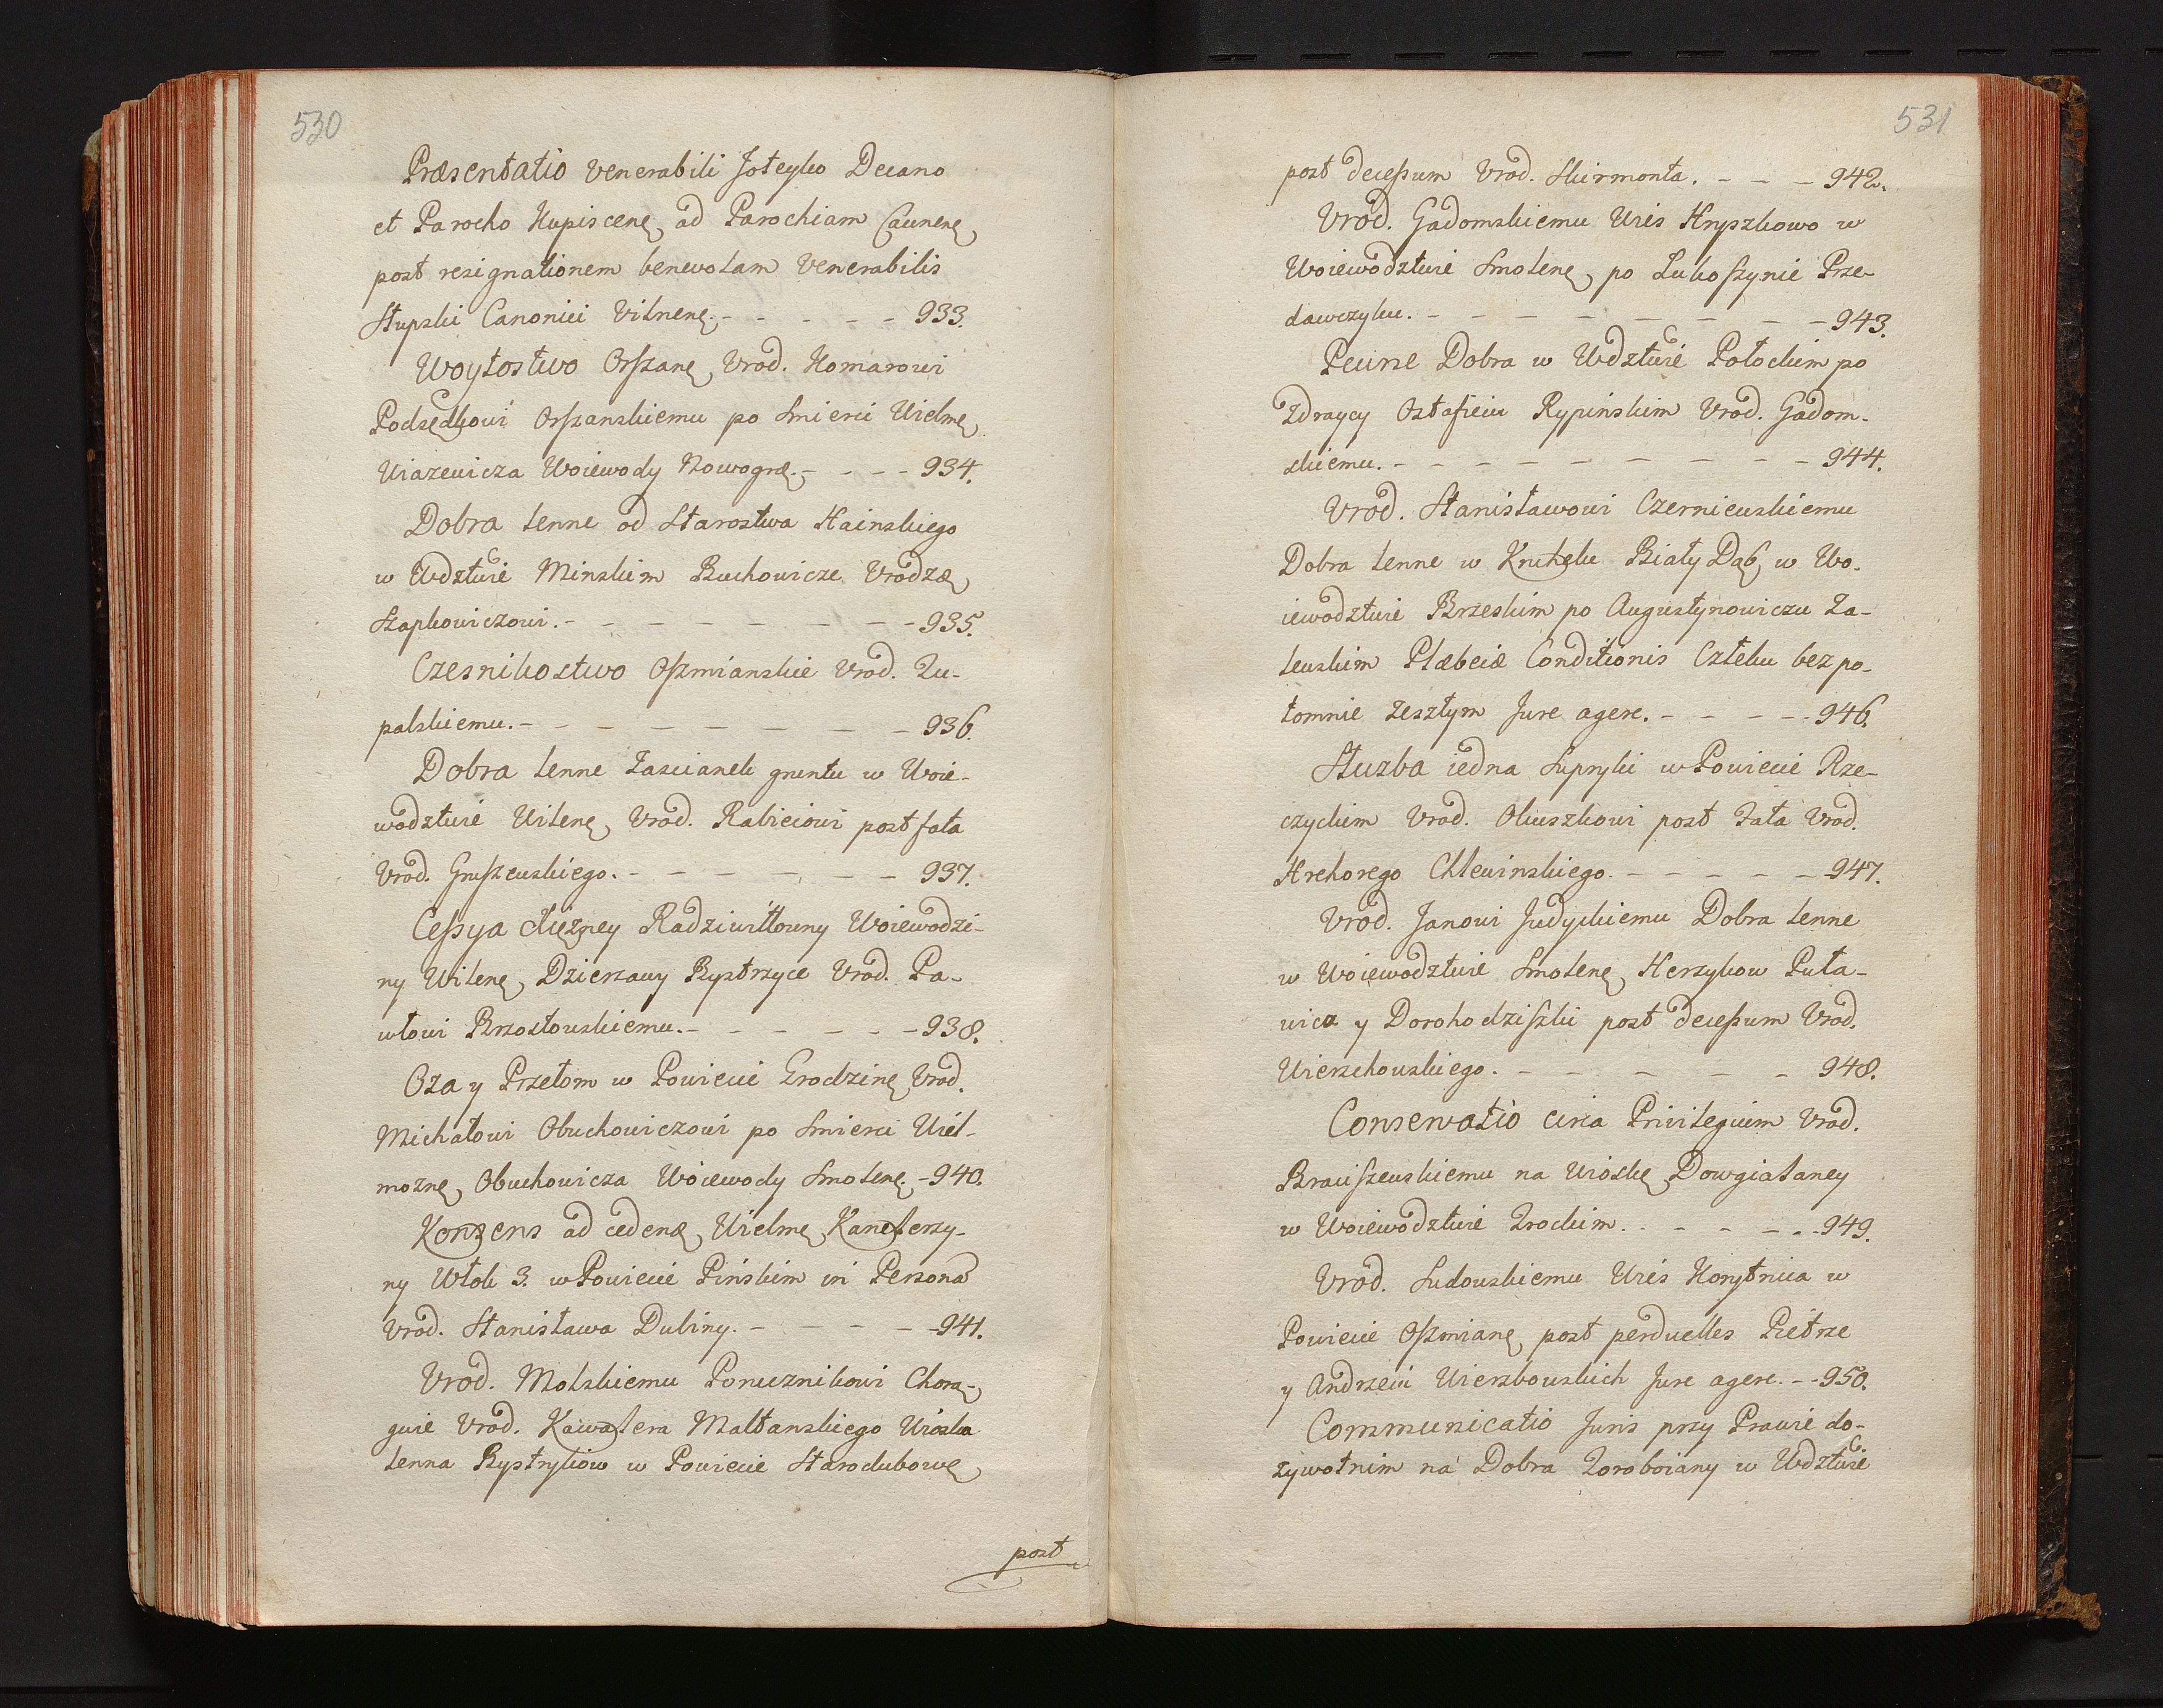 530
Præsentatio Venerabili Joteyko Decano
et Parocho Kupiscenę ad Parochiam Caunenę
post resignationem benevolam Venerabilis
Słupski Canonici Vilnenę. - - - - - 933.
Woytostwo Orszanę Vrod. Komarowi
Podsędkowi Orszanskiemu po Smierci Wielmę
Wiazewicza Woiewody Nowogrę. - - - - 934.
Dobra lenne od Starostwa Hainskiego
w Wdztwie Minskim Buchowicze Vrodzę
Szapkowiczowi. - - - - - - - - 935.
Czesnikostwo Oszmianskie Vrod. Zu-
palskiemu. - - - - - - - - 936.
Dobra lenne Zascianek gruntu w Woie-
wodztwie Wilenę Vrod. Rabiciowi post fata
Vrod. Gruszewskiego. - - - - - - 937.
Cessya Xiężney Radziwiłłowny Woiewodzi-
ny Wilenę Dzierzawy Bystrzyce Vrod. Pa-
włowi Brzostowskiemu. - - - - - - 938.
Oza y Przełom w Powiecie Grodzinę Vrod.
Michałowi Obuchowiczowi po Smierci Wiel-
moznę Obuchowicza Woiewody Smolenę. - 940.
Konsens ad cedenę Wielmę Kanclerzy-
ny Włok 3. w Powiecie Pińskim in Persona
Vrod. Stanisława Dubiny. - - - - - 941.
Vrod. Molskiemu Porucznikowi Chorą-
gwie Vrod. Kawalera Maltanskiego Wioska
lenna Bystrykow w Powiecie Starodubowę
post
531
post decessum Vrod. Skirmonta. - - - 942.
Vrod. Gadomskiemu Wies Hryszkowo w
Woiewodztwie Smolenę po Lukoszynie Prze-
dawczyku. - - - - - - - - - 943.
Pewne Dobra w Wdztwie Połockim po
Zdraycy Ostafieiu Rypińskim Vrod. Gadom-
skiemu. - - - - - - - - - 944.
Vrod. Stanisławowi Czerniewskiemu
Dobra lenne w Kruhelu Biały Dąb, w Wo-
iewodztwie Brzeskim po Augustynowiczu Za-
lewskim Plæbeiæ Conditionis Człeku bez po-
tomnie zeszłym Jure agere. - - - - - 946.
Słuzba iedna Supryki w Powiecie Rze-
czyckim Vrod. Oluszkowi post Fata Vrod.
Hrehorego Chlewinskiego. - - - - - - 947.
Vrod. Janowi Judyckiemu Dobra lenne
w Woiewodztwie Smolenę Herzykow Puta-
wica y Dorohodziszki post decessum Vrod.
Wierzchowskiego. - - - - - - 948.
Conservatio circa Privilegium Vrod.
Braiiszewskiemu na Wioskę Dowgiałaney
w Woiewodztwie Trockim. - - - - - - 949.
Vrod. Sudowskiemu Wies Korytnica w
Powiecie Oszmianę post perduelles Pietrze
y Andrzeiu Wierzbowskich Jure agere. - - 950.
Communicatio Juris przy Prawie do-
zywotnim na Dobra Zoroboiany w Wdztwie